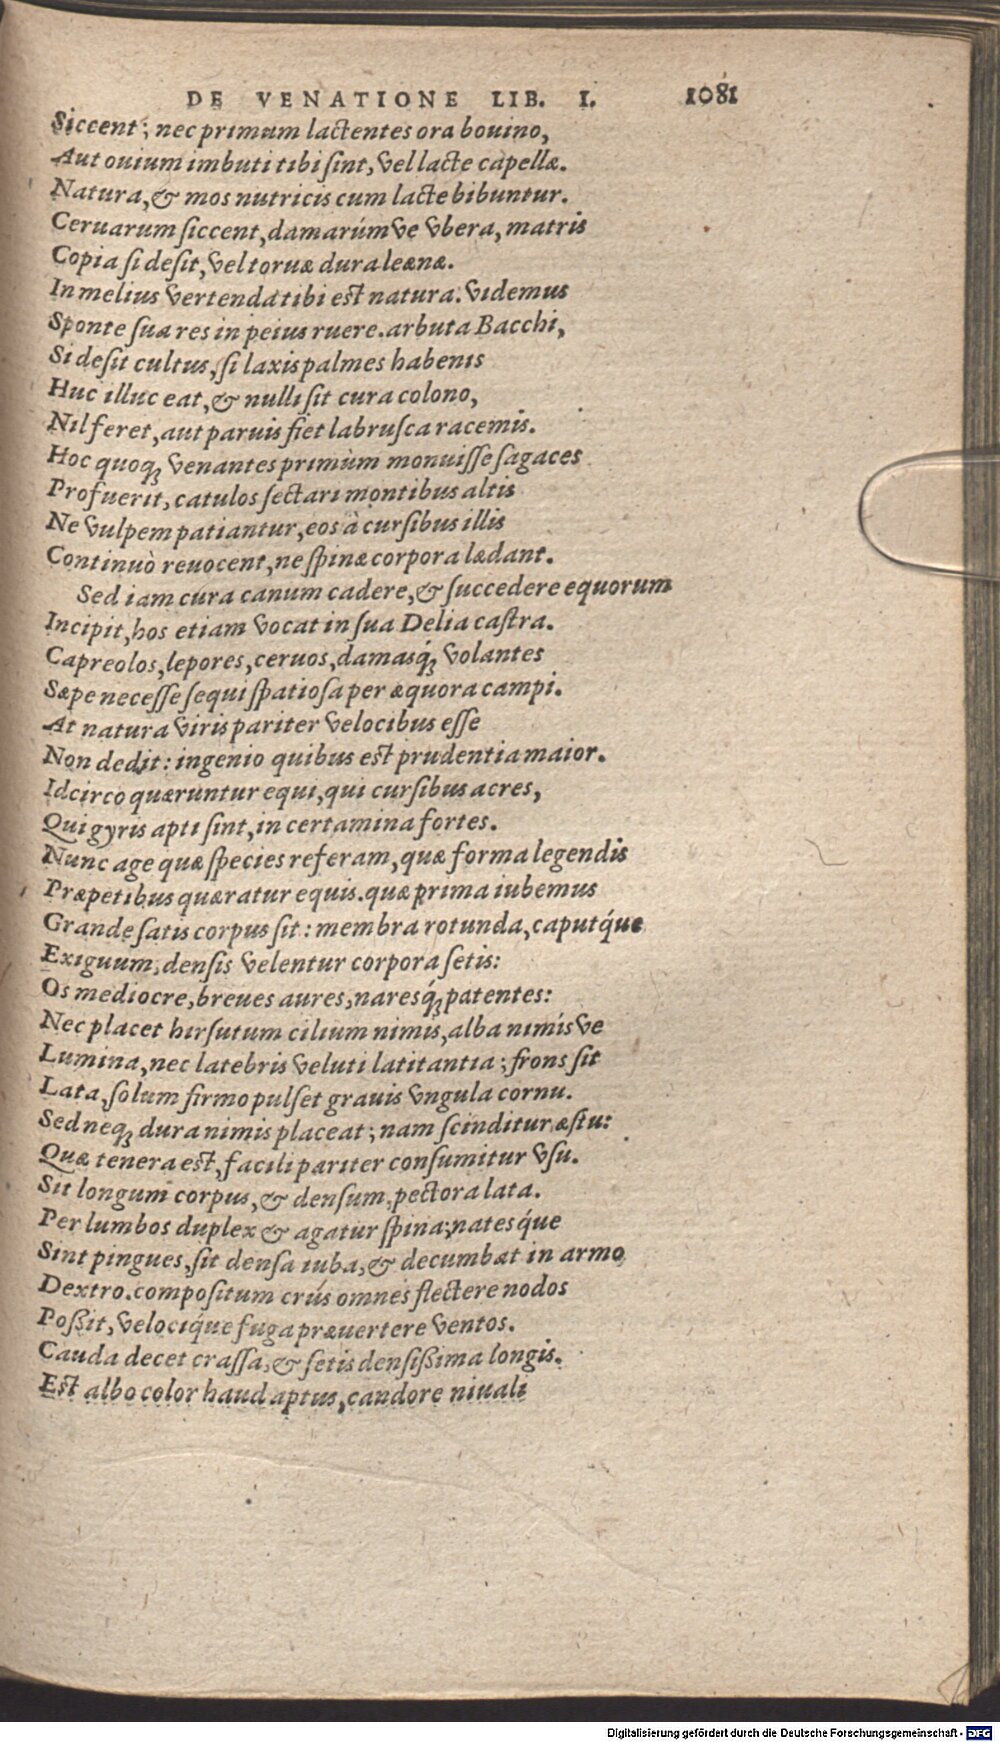 DE VENATIONE LIB. I. 1081
Siccent; nec primum lactentes ora bouino,
Aut ouium imbuti tibi sint, vel lacte capellæ.
Natura, & mos nutricis cum lacte bibuntur.
Ceruarum siccent, damarúmve vbera, matris
Copia si desit, vel toruæ dura leænæ.
In melius vertenda tibi est natura. videmus
Sponte sua res in peius ruere. arbuta Bacchi,
Si desit cultus, si laxis palmes habenis
Huc illuc eat, & nulli sit cura colono,
Nil feret, aut paruis fiet labrusca racemis.
Hoc quoq; venantes primùm monuisse sagaces
Profuerit, catulos sectari montibus altis
Ne vulpem patiantur, eos à cursibus illis
Continuò reuocent, ne spinæ corpora lædant.
Sed iam cura canum cadere, & succedere equorum
Incipit, hos etiam vocat in sua Delia castra.
Capreolos, lepores, ceruos, damasq́; volantes
Sæpe necesse sequi spatiosa per æquora campi.
At natura viris pariter velocibus esse
Non dedit: ingenio quibus est prudentia maior.
Idcirco quæruntur equi, qui cursibus acres,
Qui gyris apti sint, in certamina fortes.
Nunc age quæ species referam, quæ forma legendis
Præpetibus quæratur equis. quæ prima iubemus
Grande satis corpus sit: membra rotunda, caputq́ue
Exiguum, densis velentur corpora setis:
Os mediocre, breues aures, naresq́; patentes:
Nec placet hirsutum cilium nimis, alba nimísve
Lumina, nec latebris veluti latitantia; frons sit
Lata, solum firmo pulset grauis vngula cornu.
Sed neq; dura nimis placeat; nam scinditur æstu:
Quæ tenera est, facili pariter consumitur vsu.
Sit longum corpus, & densum, pectora lata.
Per lumbos duplex & agatur spina; natesq́ue
Sint pingues, sit densa iuba, & decumbat in armo
Dextro. compositum crús omnes flectere nodos
Possit, velociq́ue fuga præuertere ventos.
Cauda decet crassa, & setis densissima longis.
Est albo color haud aptus, candore niuali
Digitalisierung gefördert durch die Deutsche Forschungsgemeinschaft - DFG